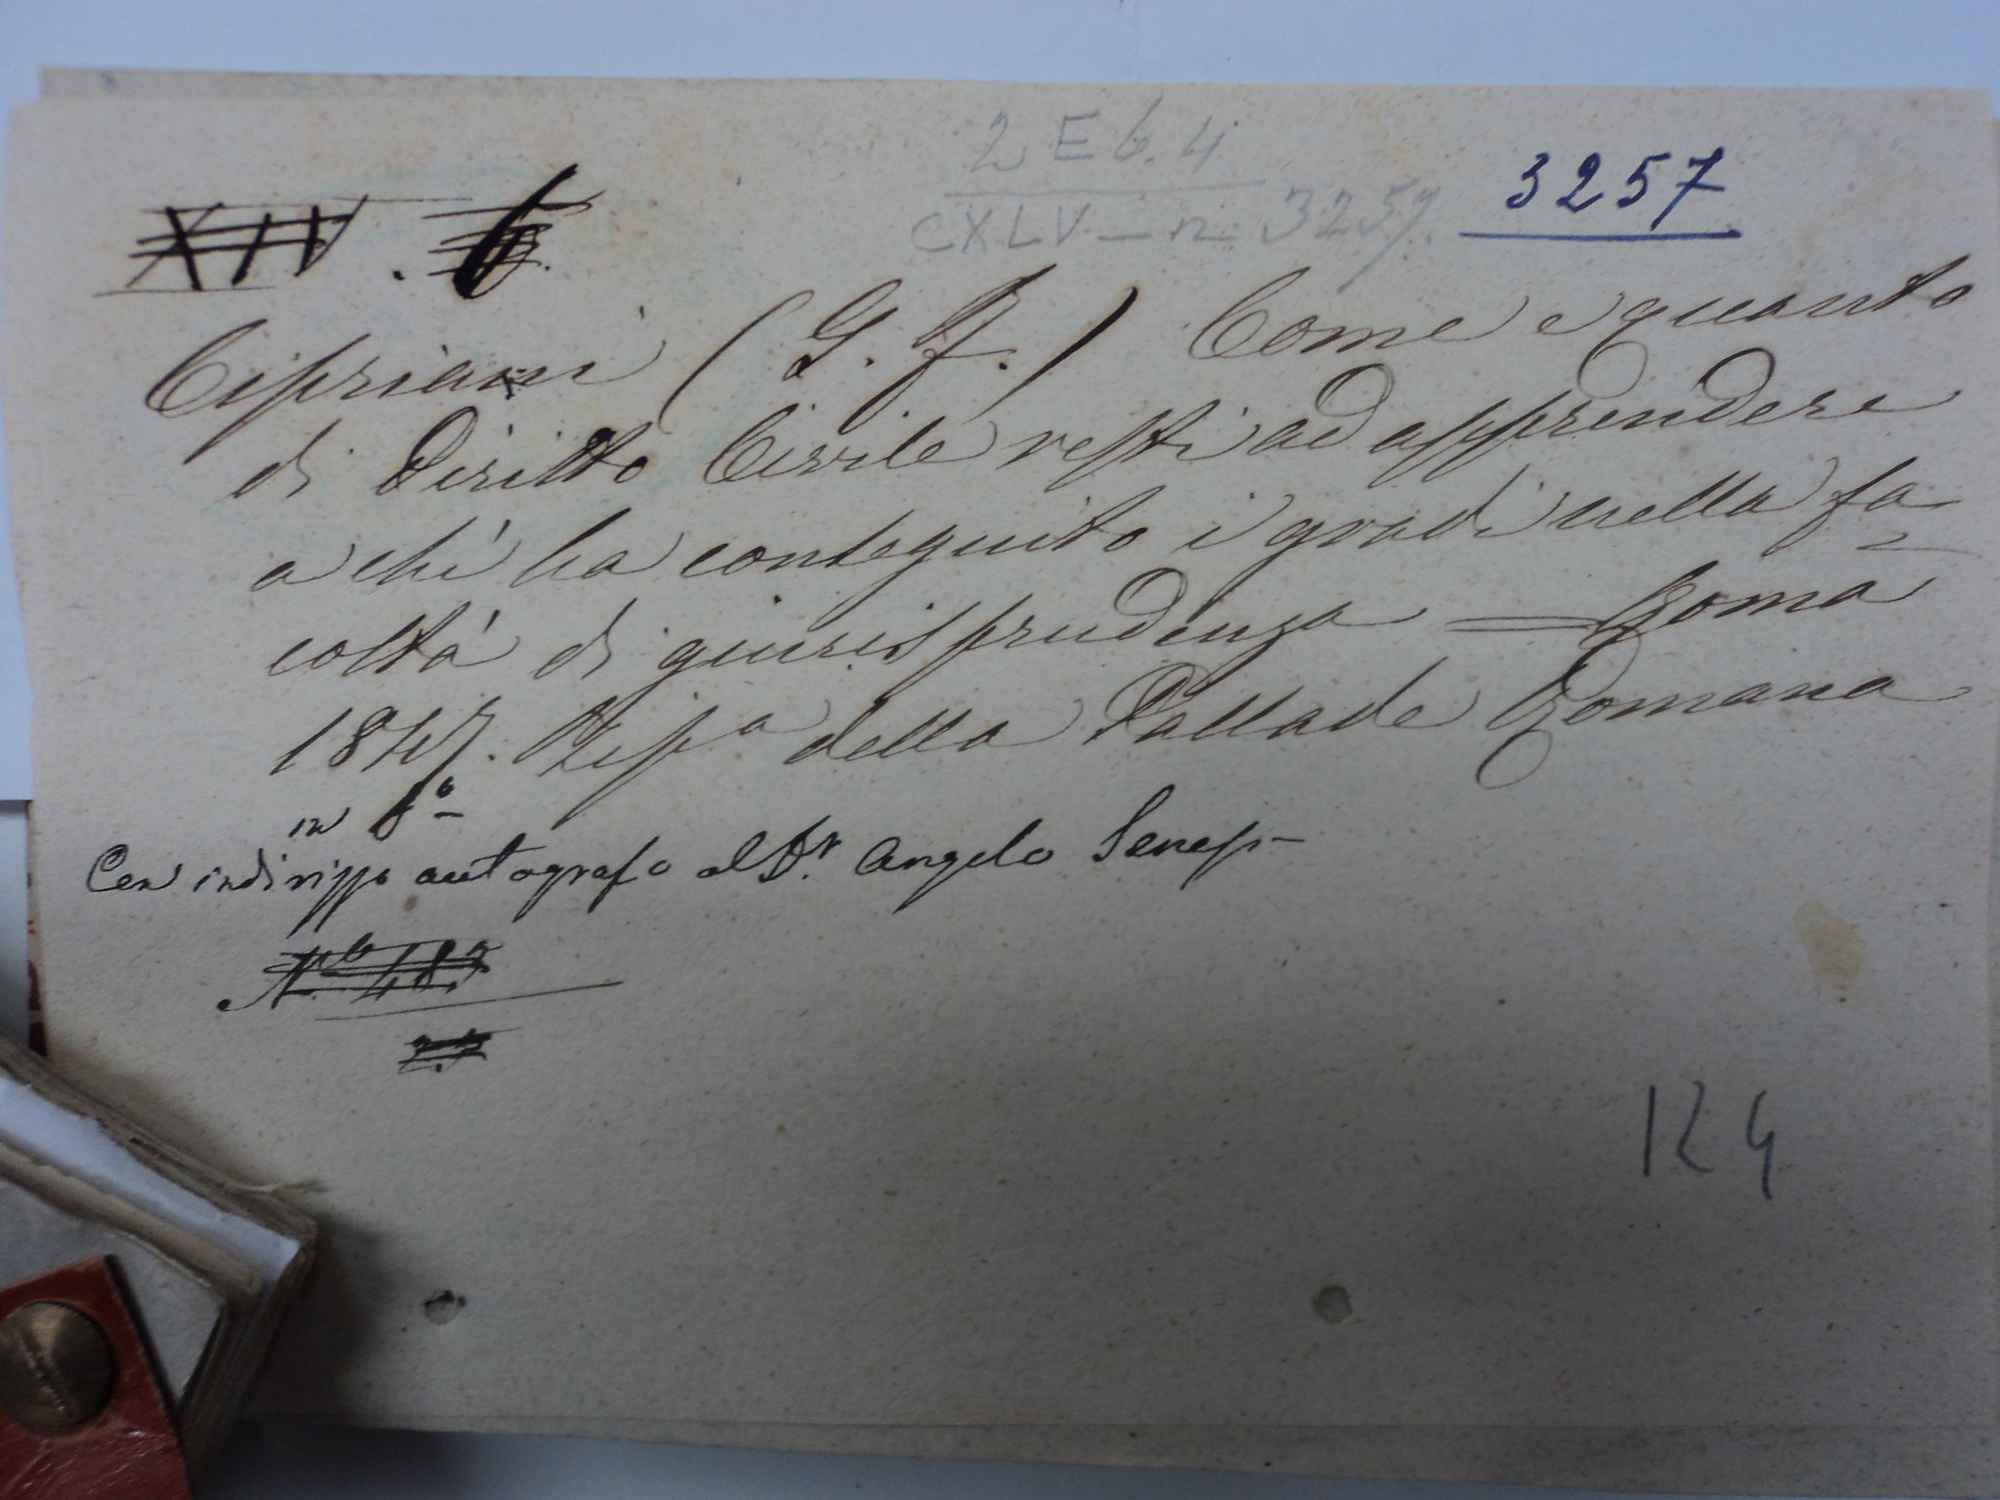 2 E 6. 4
3257
CXLV - n. 3257.
XIV . 6
Cipriani (G. F.) Come e quanto
di Diritto Civile resti ad apprendere
a chi ha conseguito i gradi nella fa-
coltà di giurisprudenza = Roma
1847. Tip.a della Pallade Romana
in 8°
Con indirizzo autografo al Dr. Angelo
124